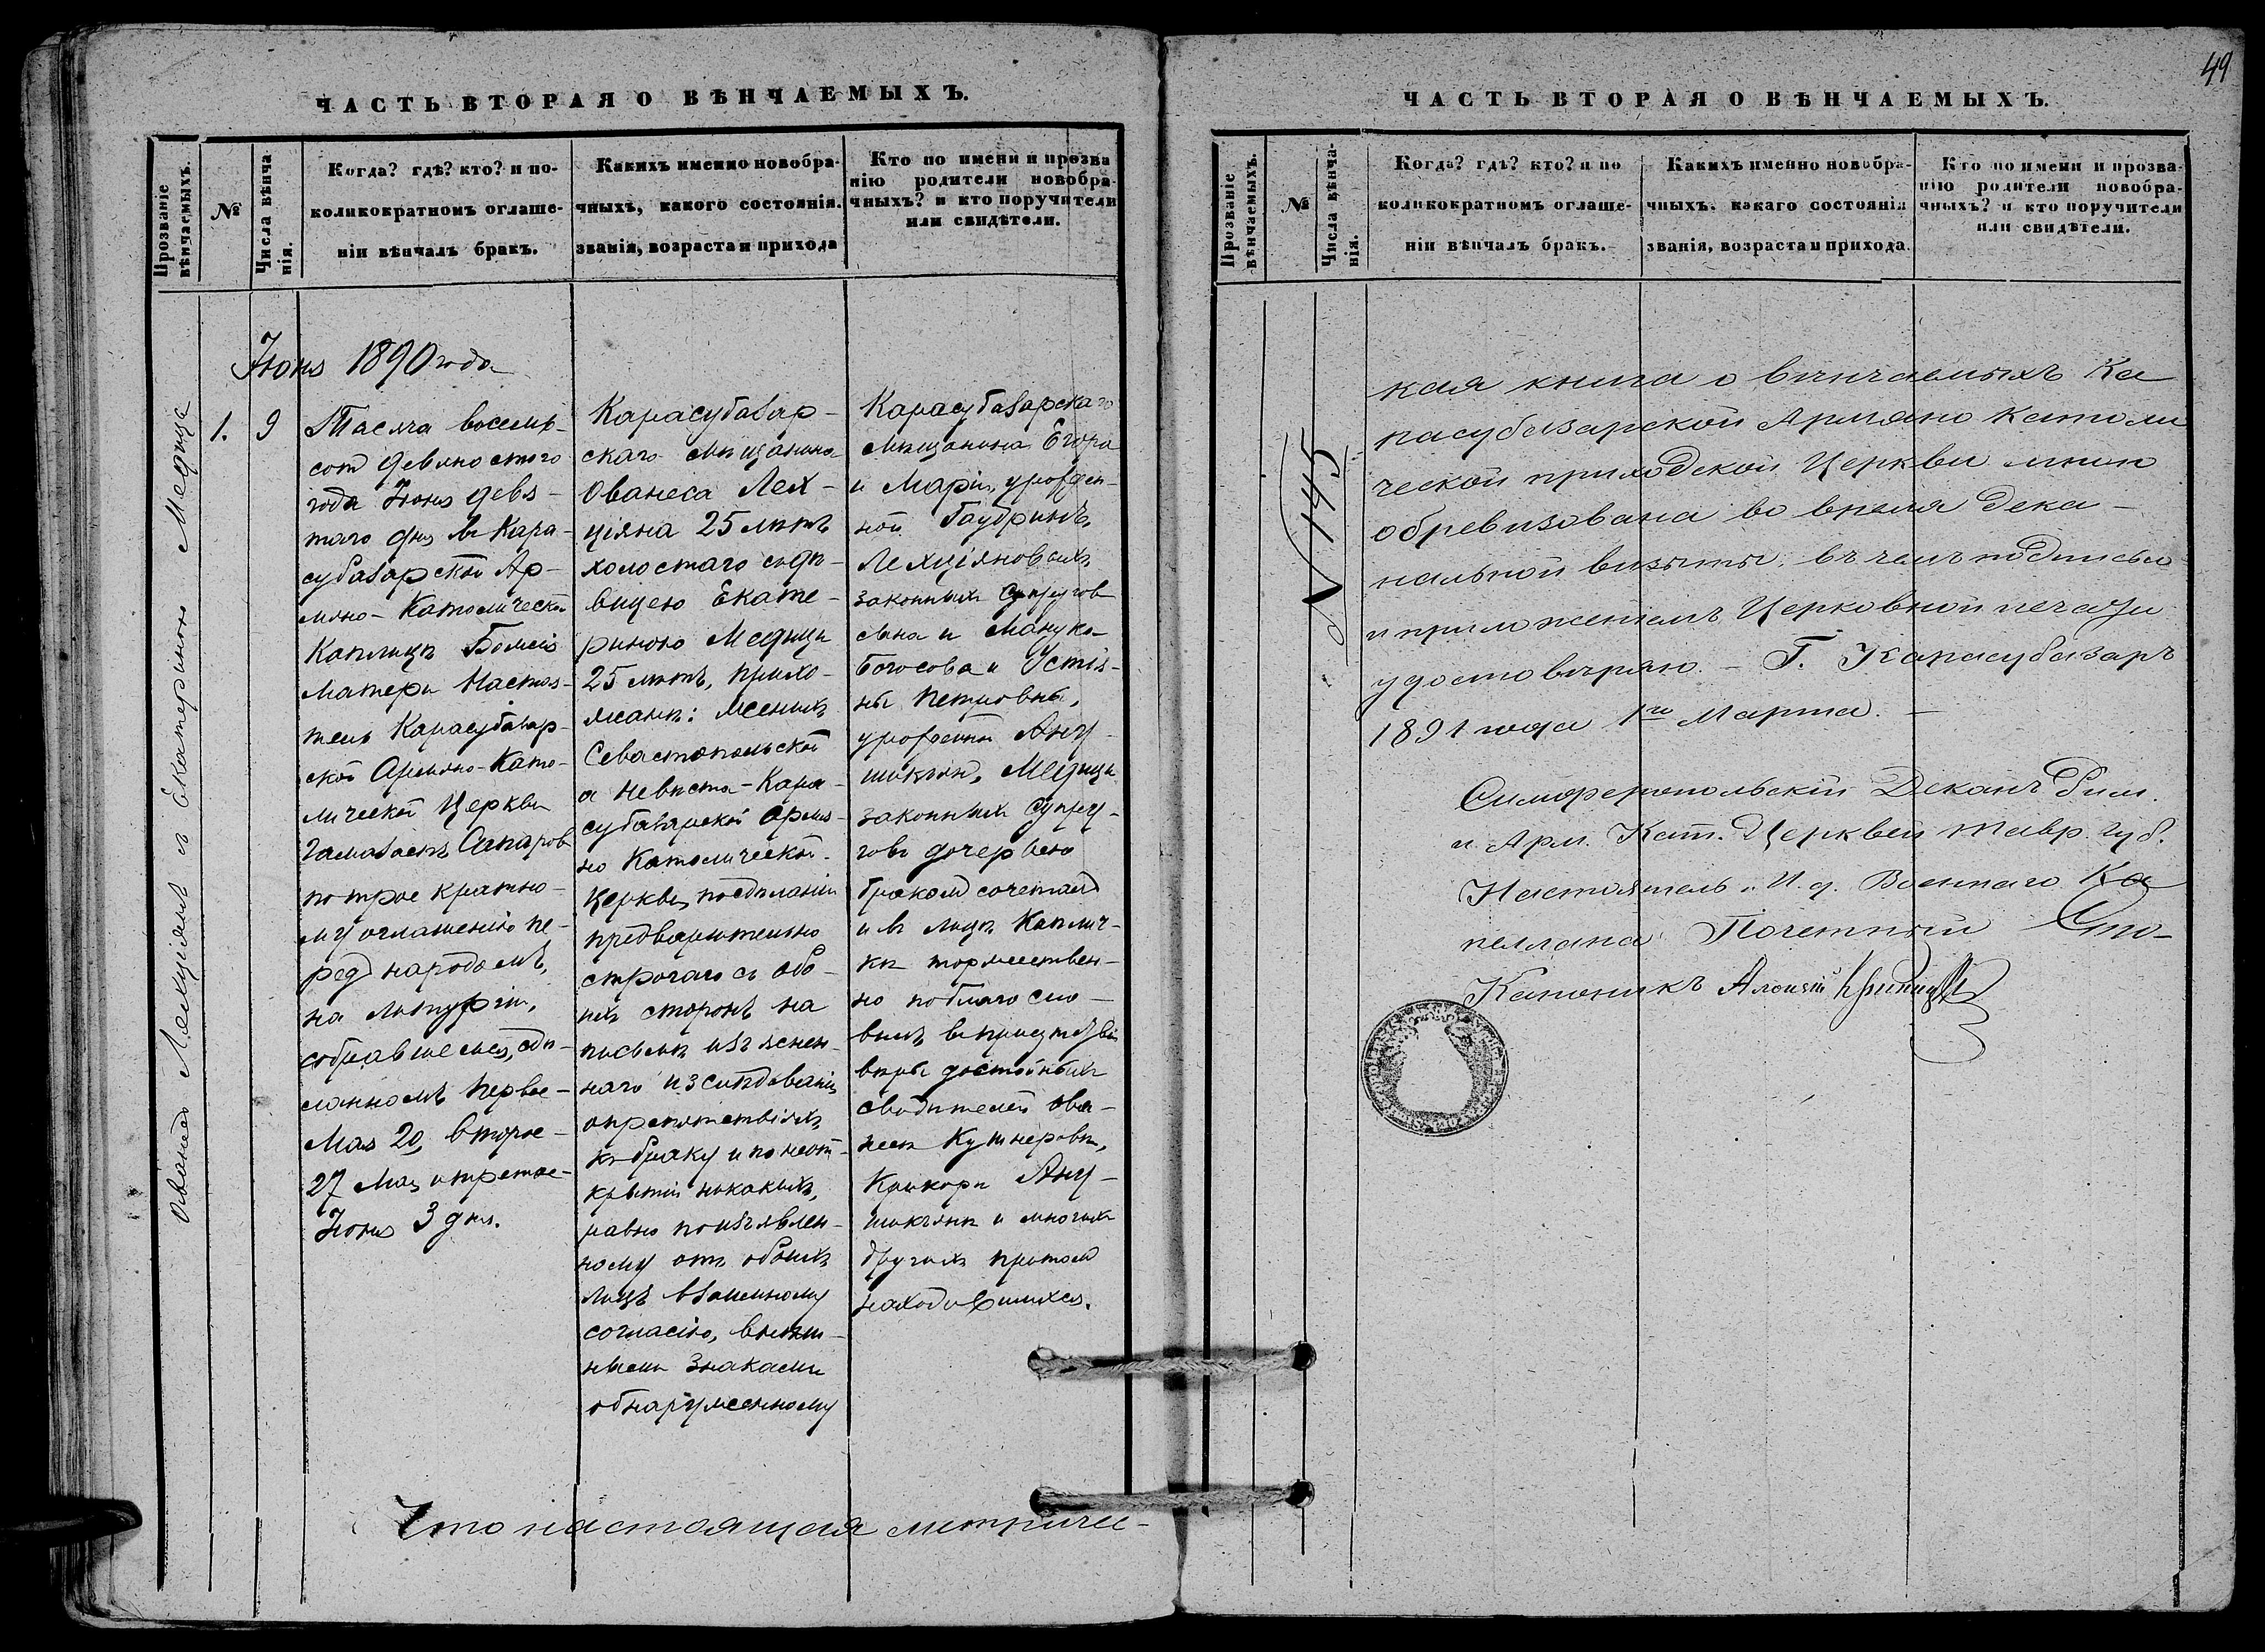 49
ЧАСТЬ ВТОРАЯ О ВѢНЧАЕМЫХЪ.
Прозваніе вѣнчаемыхъ.
№
Числа вѣнчанія.
Когда? гдѣ? кто? и по-
коликократномъ оглаше-
ніи вѣнчалъ бракъ.
Какихъ именно новобра-
чныхъ, какого состоянія.
званія, возраста и прихода
Кто по имени и прозва
нію родители новобра-
чныхъ? и кто поручители
или свидѣтели.
Іюнь 1890 года
Ованеса Лехціянъ съ Екатериною Медзица
1.
9
Тысяча восемь-
сот девяностого
года Іюня девя-
таго дня въ Кара-
субазарской Ар-
мяно-Католической
Каплицѣ Божіей
Матери Настоя-
тель Карасубазар-
ской Армяно-Като-
лической Церкви
Гамазаспъ Сапаров
по трое кратно-
му оглашенію пе-
ред народомъ,
на литургіи,
собравшемся, сдѣ-
ланномъ первое-
Мая 20, второе-
27 Мая и третое-
Іюня 3 дня.
Карасубазар-
скаго мѣщанина
Ованеса Лех-
ціяна 25 лѣтъ
холостаго съ дѣ-
вицею Екате-
риною Медзици
25 лѣтъ, прихо-
жанъ: женихъ
Севастопольской
а невѣста-Кара-
субазарской Армя-
но Католической
Церкви, по сдѣланіи
предварительно
строгаго съ обо-
ихъ сторонъ на
письмѣ изъяснен-
наго изслѣдованія
о препятствіяхъ
къ браку и по неот-
крытіи никакихъ,
равно по изъявлен-
ному отъ обоихъ
лицъ взаимному
согласію, внѣш-
ними знаками
обнаруженному
Карасубазарскаго
мѣщанина Егора
и Маріи, урожден-
ной Гаубринъ,
Лехціяновыхъ
законныхъ супругов
сына и Манука-
Богосова и Устія-
ны Петровны,
урожденной Ану-
шикъян, Медзици
законныхъ супру-
говъ дочерью
бракомъ сочеталъ
и въ лицѣ Каплич-
ки торжествен-
но поблагосло-
вилъ въ присутствіи
вѣры достойныхъ
свидѣтелей Ова-
неса Кушнерова,
Крикора Ану-
шикъяна и многихъ
другихъ притомъ
находившихся.
Что настоящая метриче-
ЧАСТЬ ВТОРАЯ О ВѢНЧАЕМЫХЪ.
Прозваніе вѣнчаемыхъ.
№
Числа вѣнча-
нія.
Когда? гдѣ? кто? и по
коликократномъ оглаше-
ніи вѣнчалъ бракъ.
Какихъ именно новобра-
чныхъ. какаго состоянія
званія, возраста и прихода.
Кто по имени и прозва-
нію родители новобра-
чныхъ? и кто поручители
или свидѣтели.
N 145
кая книга о вѣнчаемыхъ Ка
расубазарской Армяно Католи
ческой приходской Церкви мною
обревизована во время Дека-
нальной визиты, въ чемъ подписью
и приложеніемъ Церковной печати
удостовѣряю. - Г. Карасубазаръ
1891 года 1го Марта. -
Симферопольскій Деканъ Рим.
и Арм. Кат. Церквей Тавр. Губ.
Настоятель, И. д. Военнаго Ка
пеллана Почетный
Каноникъ Алоизій